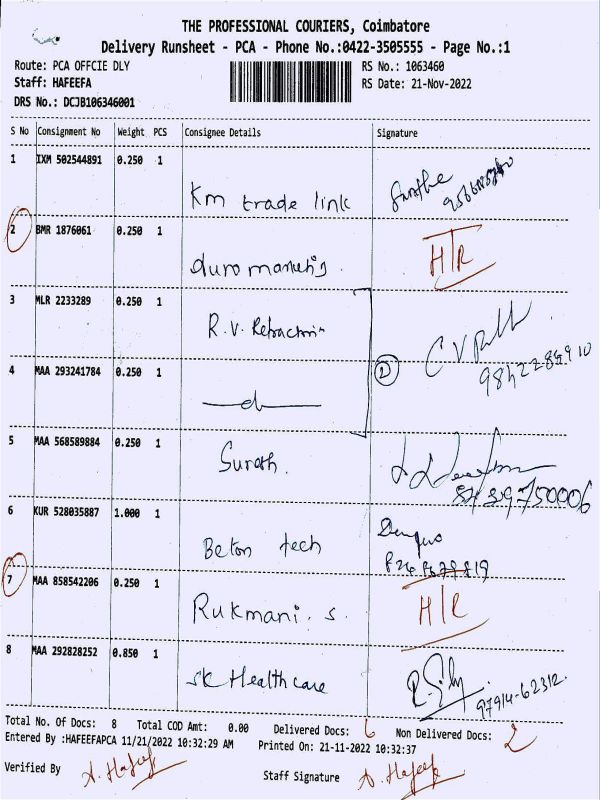 THE PROFESSIONAL COURIERS, Coimbatore
Delivery Runsheet - PCA - Phone No.:0422-3505555 - Page No.:1
Route: PCA OFFCIE DLY RS No.: 1063460
Staff: HAFEEFA RS Date: 21-Nov-2022
DRS No.: DCJB106346001
S No Consignment No Weight PCS Consignee Details Signature
1 IXM 502544891 0.250 1
Km trade link
2 BMR 1876061 0.250 1
H/R
3 MLR 2233289 0.250 1
R.V.
4 MAA 293241784 0.250 1
2
5 MAA 568589884 0.250 1
6 KUR 528035887 1.000 1
Beton tech
7 MAA 858542206 0.250 1
Rukmani. S. H/R
8 MAA 292828252 0.850 1
SK Health care 97914-62312.
Total No. Of Docs: 8 Total COD Amt: 0.00 Delivered Docs: 6 Non Delivered Docs: 2
Entered By :HAFEEFAPCA 11/21/2022 10:32:29 AM Printed On: 21-11-2022 10:32:37
Verified By A. Hafeef Staff Signature A. Hafeef